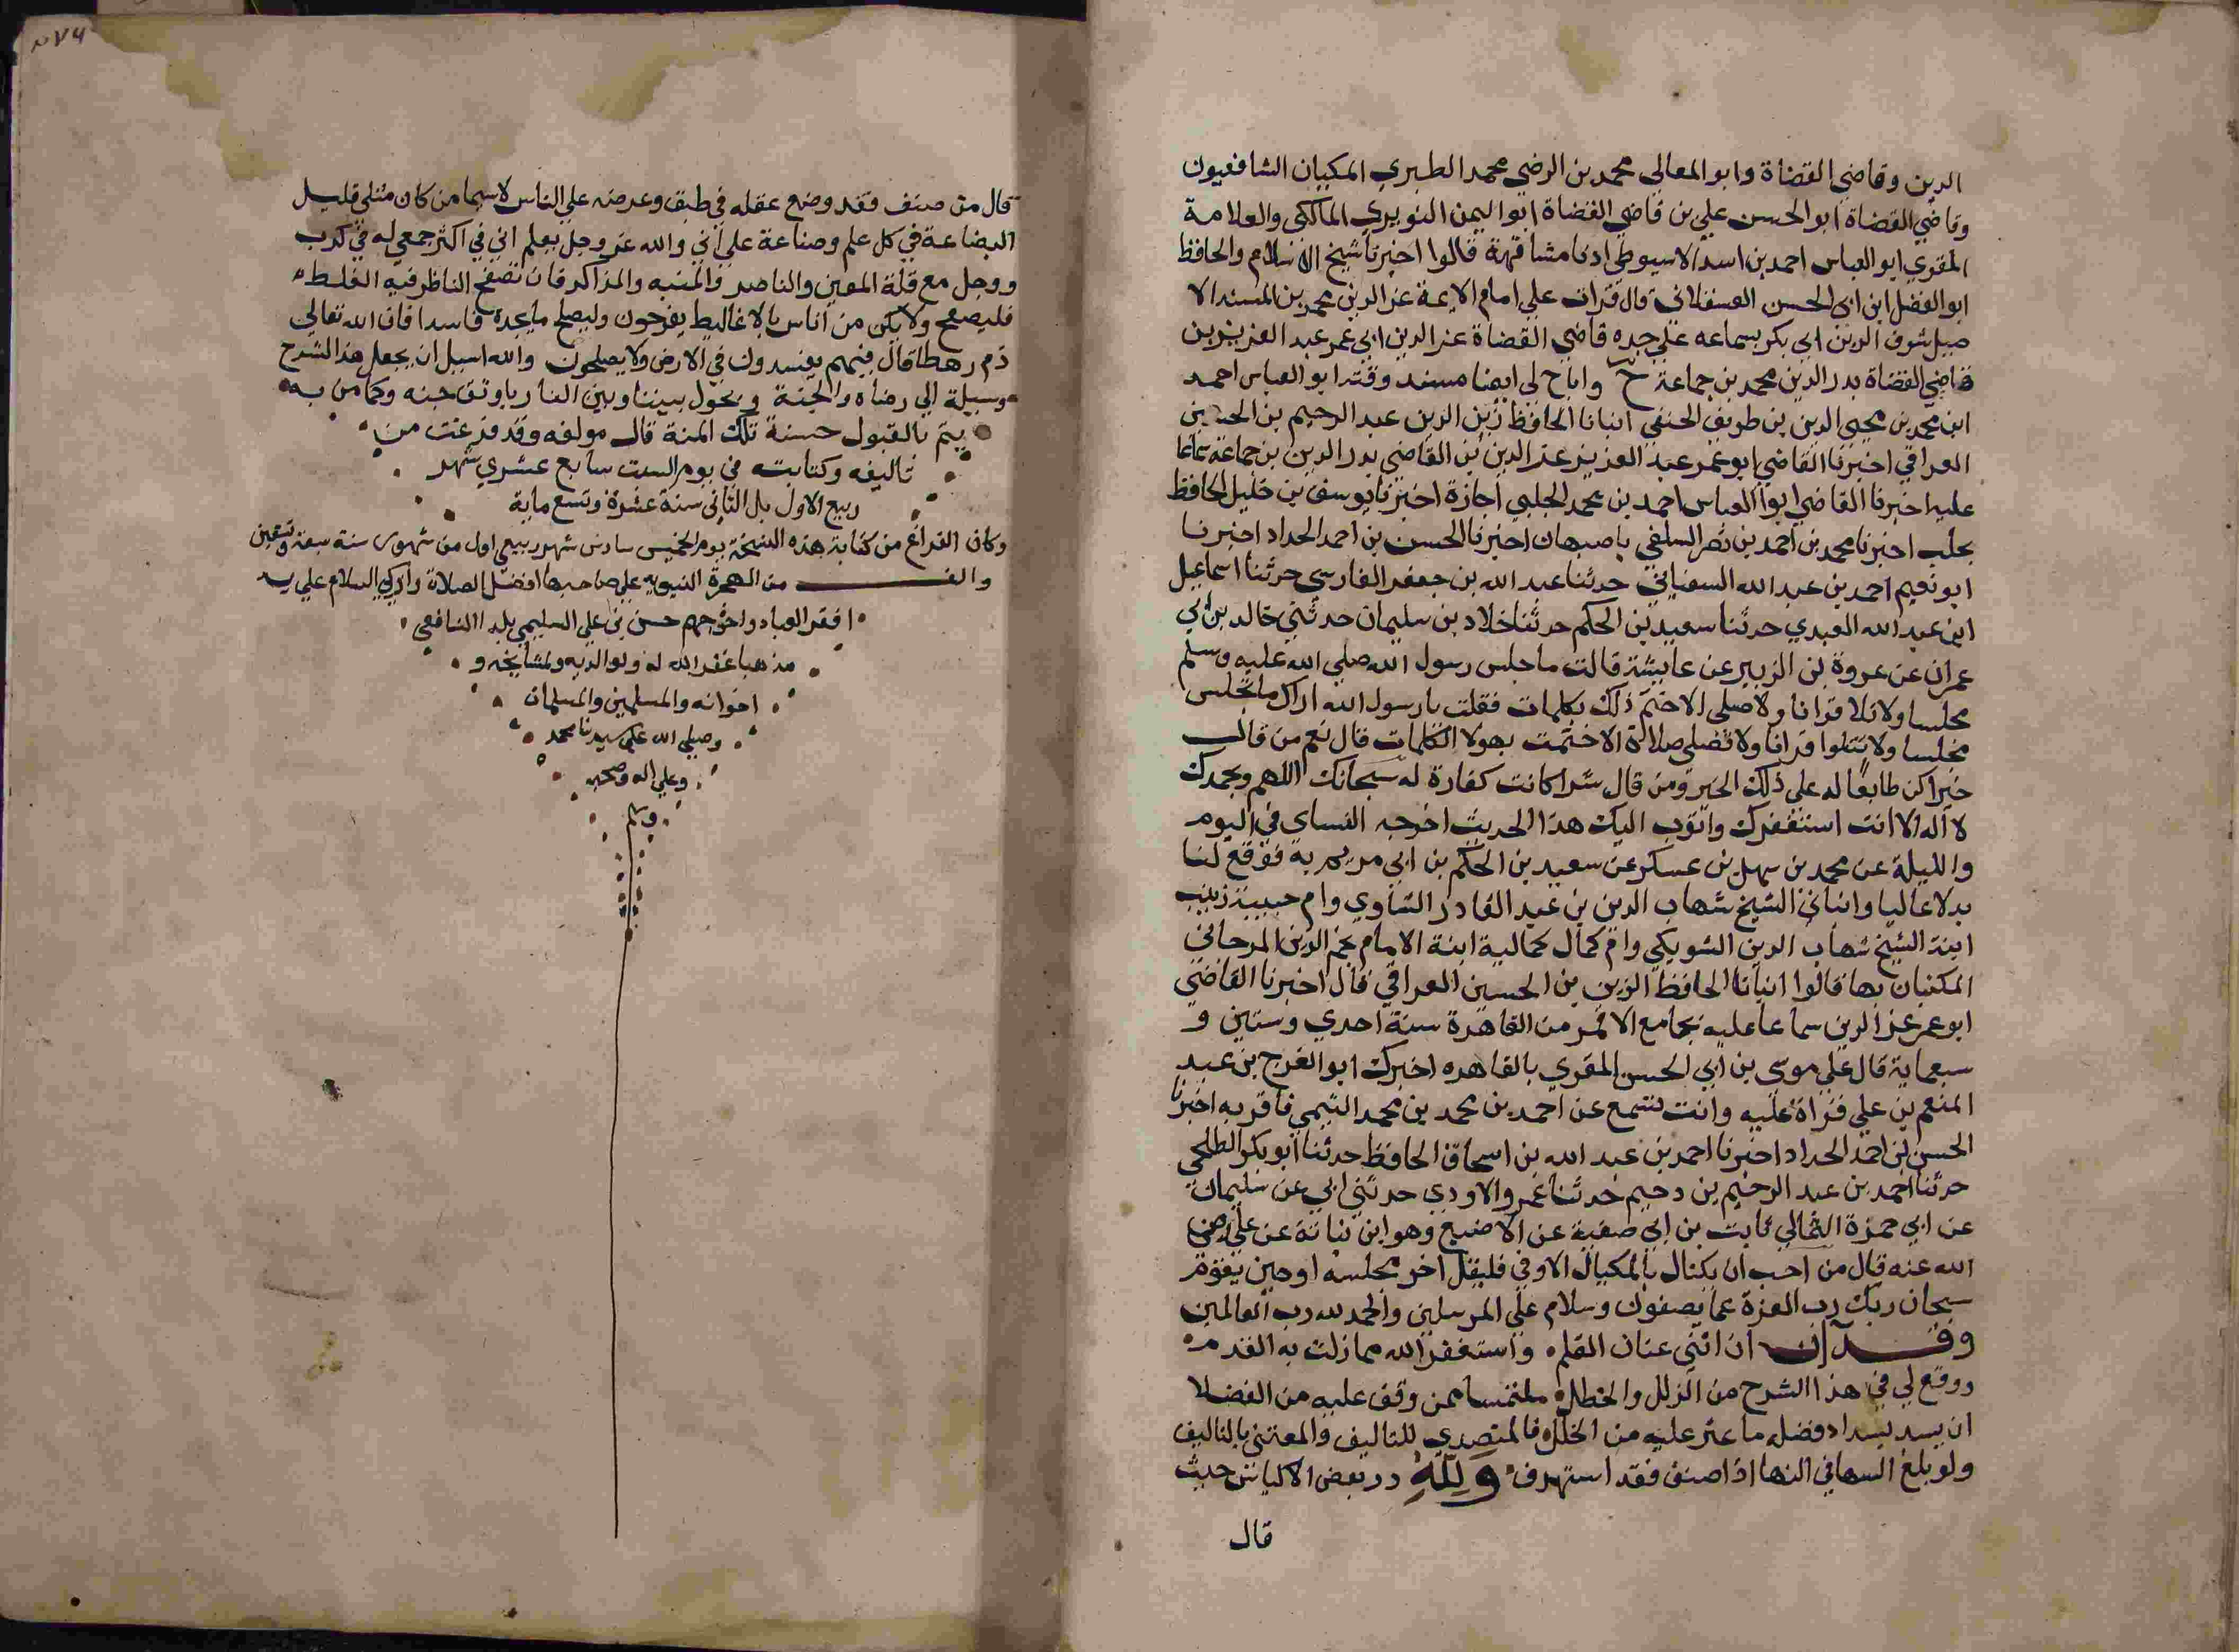 الدين وقاضي القضاة وابو المعالي محمد بن الرضي محمد الطبري المكيان الشافعيون
وقاضي القضاة ابو الحسن علي بن قاضي القضاة ابو اليمن النويري المالكي والعلامة
المقري ابو العباس احمد بن اسد الاسيوطي اذنا مشافهة قالوا اخبرنا شيخ الاسلام والحافظ
ابو الفضل ابن ابي الحسن العسقلاني قال قرات علي امام الايمة عز الدين محمد بن المسند الا
صيل شرف الدين ابي بكر بسماعه علي جده قاضي القضاة عز الدين ابي عمر عبد العزيز بن
قاضي القضاة بدر الدين محمد بن جماعة ح واباح لي ايضا مسند وقته ابو العباس احمد
ابن محمد بن محيي الدين بن طريف الحنفي انبانا الحافظ زين الدين عبد الرحيم بن الحسين
العراقي اخبرنا القاضي ابو عمر عبد العزيز عز الدين بن القاضي بدر الدين بن جماعة سماعا
عليه اخبرنا القاضي ابو العباس احمد بن محمد الحلبي اجازة اخبرنا يوسف بن خليل الحافظ
بحلب اخبرنا محمد بن احمد بن نصر السلفي باصبهان اخبرنا الحسن بن احمد الحداد اخبرنا
ابو نعيم احمد بن عبد الله السفياني حدثنا عبد الله بن جعفر الفارسي حدثنا اسماعيل
ابن عبد الله العبدي حدثنا سعيد بن الحكم حدثنا خلاد بن سليمان حدثني خالد بن ابي
عمران عن عروة بن الزبير عن عايشة قالت ما جلس رسول الله صلي الله عليه وسلم
مجلسا ولا تلا قرانا ولا صلى الا ختم ذلك بكلمات فقلت يا رسول الله اراك ما تجلس
مجلسا ولا تتلوا قرانا ولا تصلي صلاة الا ختمت بهولا الكلمات قال نعم من قال
خيرا كن طابعا له على ذلك الخير ومن قال شرا كانت كفارة له سبحانك اللهم وبحمدك
لا اله الا انت استغفرك واتوب اليك هذا الحديث اخرجه النساي في اليوم
والليلة عن محمد بن سهل بن عسكر عن سعيد بن الحكم بن ابي مريم به فوقع لنا
بدلا عاليا وانباني الشيخ شهاب الدين بن عبد القادر الشاوي وام حبيبة زينب
ابنة الشيخ شهاب الدين الشويكي وام كمال كمالية ابنة الامام نجم الدين المرجاني
المكيتان بها قالوا انبانا الحافظ الزين بن الحسين العراقي قال اخبرنا القاضي
ابو عمر عز الدين سماعا عليه بجامع الاقمر من القاهرة سنة احدي وستين و
سبعماية قال علي موسى بن ابي الحسن المقري بالقاهره اخبرك ابو الفرج بن عبد
المنعم بن علي قراة عليه وانت تسمع عن احمد بن محمد بن محمد التيمي فاقر به اخبرنا
الحسن بن احمد الحداد اخبرنا احمد بن عبد الله بن اسحاق الحافظ حدثنا ابو بكر الطلحي
حدثنا احمد بن عبد الرحيم بن دحيم حدثنا عمرو الاودي حدثني ابي عن سليمان
عن ابي حمزة الثمالي ثابت بن ابي صفية عن الاصبغ وهو ابن نباتة عن علي رضي
الله عنه قال من احب ان يكتال بالمكيال الاوفي فليقل اخر مجلسه او حين يقوم
سبحان ربك رب العزة عما يصفون وسلام على المرسلين والحمد لله رب العالمين
وقد آن ان اثني عنان القلم واستغفر الله مما زلت به القدم
ووقع لي في هذا الشرح من الزلل والخطل ملتمسا ممن وقف عليه من الفضلا
ان يسد بسداد فضله ما عثر عليه من الخلل فالمتصدي للتاليف والمعتني بالتاليف
ولو بلغ السها في النها اذا صنف فقد استهدف ولله در بعض الاكياس حيث
قال
قال من صنف فقد وضع عقله في طبق وعرضه علي الناس لاسيما من كان مثلي قليل
البضاعة في كل علم وصناعة علي اني والله عز وجل يعلم اني في اكثر جمعي له في كرب
ووجل مع قلة المعين والناصر والمنبه والمذاكر فان تصفح الناظر فيه الغلط
فليصفح ولا يكن من اناس بالاغاليط يفرحون وليصلح ما يجده فاسدا فان الله تعالي
ذم رهطا قال فيهم يفسدون في الارض ولا يصلحون والله اسيل ان يجعل هذا الشرح
وسيلة الي رضاه والجنة ويحول بيننا وبين النار باوثق جنه وكما من به
يتم بالقبول حسنة تلك المنة قال مولفه وقد فرغت من
تاليفه وكتابته في يوم السبت سابع عشري شهر
ربيع الاول بل الثاني سنة عشرة وتسع ماية
وكان الفراغ من كتابة هذه النسخة يوم الخميس سادس شهر ربيع اول من شهور سنة سبعة وتسعين
والف من الهجرة النبوية علي صاحبها افضل الصلاة وازكي السلام علي يد
افقر العباد واحوجهم حسن بن علي السليمي بلدا الشافعي
مذهبا غفر الله له ولوالديه ولمشايخه و
اخوانه والمسلمين والمسلمات
وصلي الله علي سيدنا محمد
وعلي اله وصحبه
وسلم